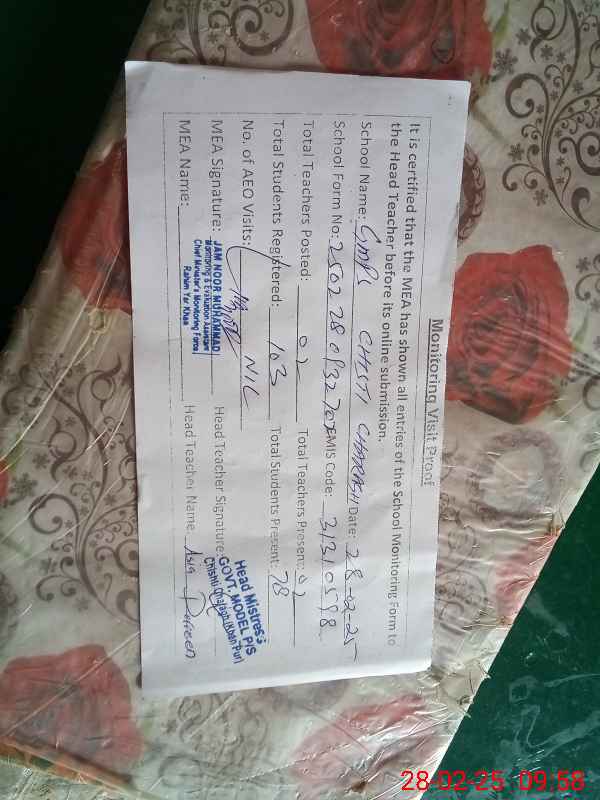 Monitoring Visit Proof
It is certified that the MEA has shown all entries of the School Monitoring Form to
the Head Teacher before its online submission.
School Name: GMPS CHISTI CHARAGH Date: 28-02-25
School Form No: EMIS Code: 31310598
Total Teachers Posted: 02 Total Teachers Present: 02
Total Students Registered: 103 Total Students Present: 78
No. of AEO Visits: NIL
MEA Signature: Head Teacher Signature:
JAM NOOR MUHAMMAD
Monitoring & Evaluation Assistant
Chief Minister's Monitoring Force
Rahim Yar Khan
Head Mistress
GOVT. MODEL P/S
Chishti Charagh (Khan Pur)
MEA Name: Head Teacher Name: Asia Parveen
28-02-25 09:58